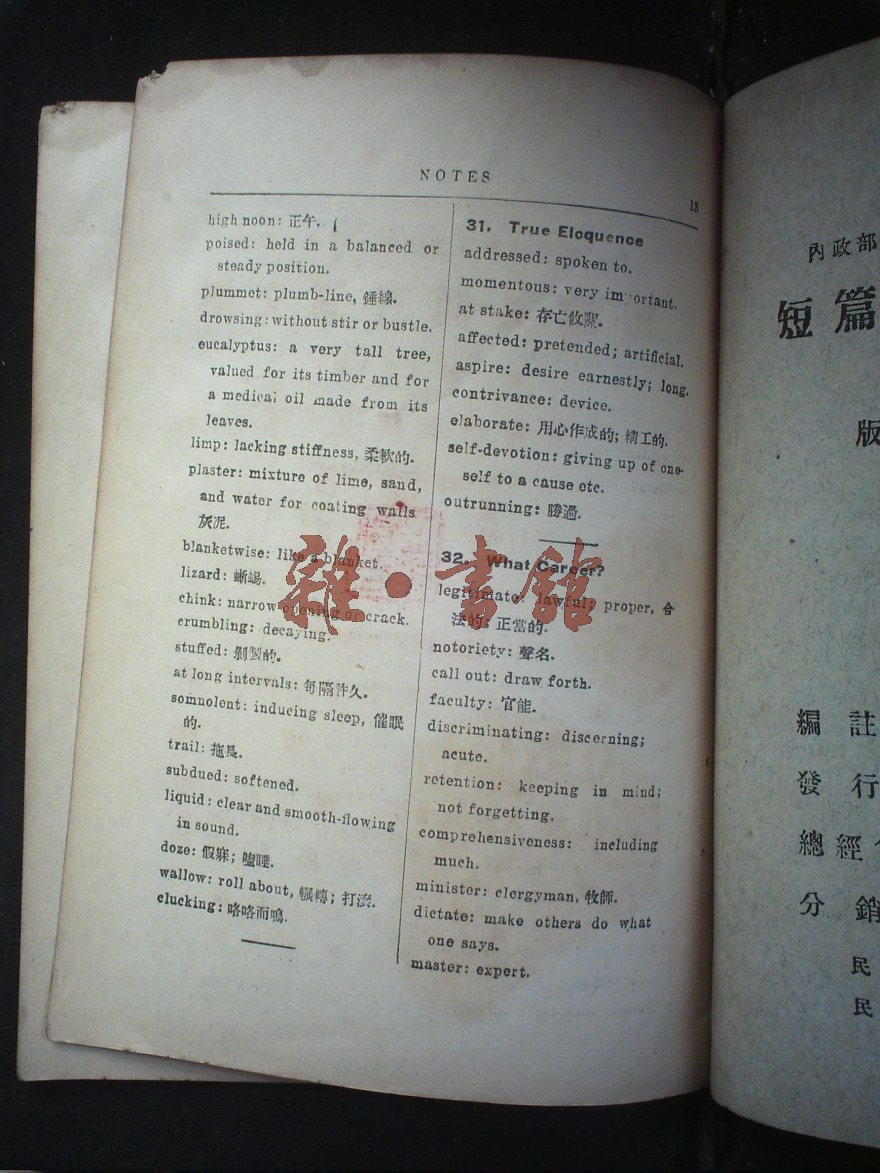 NOTES
18
high noon: 正午.
poised: held in a balanced or
steady position.
plummet: plumb-line, 錘線.
drowsing: without stir or bustle.
eucalyptus: a very tall tree,
valued for its timber and for
a medical oil made from its
leaves.
limp: lacking stiffness, 柔軟的.
plaster: mixture of lime, sand,
and water for coating walls
灰泥.
blanketwise: like a blanket.
lizard: 蜥蜴.
chink: narrow opening or crack.
crumbling: decaying.
stuffed: 剝製的.
at long intervals: 每隔許久.
somnolent: inducing sleep, 催眠
的.
trail: 拖曳.
subdued: softened.
liquid: clear and smooth-flowing
in sound.
doze: 假寐; 瞌睡.
wallow: roll about, 輾轉; 打滾.
clucking: 咯咯而鳴.
31. True Eloquence
addressed: spoken to.
momentous: very important.
at stake: 存亡攸關.
affected: pretended; artificial.
aspire: desire earnestly; long.
contrivance: device.
elaborate: 用心作成的; 精工的.
self-devotion: giving up of one-
self to a cause etc.
outrunning: 勝過.
32. What Career?
legitimate: lawful; proper, 合
法的; 正當的.
notoriety: 聲名.
call out: draw forth.
faculty: 官能.
discriminating: discerning;
acute.
retention: keeping in mind;
not forgetting.
comprehensiveness: including
much.
minister: clergyman, 牧師.
dictate: make others do what
one says.
master: expert.
雜·書館
內政部
短篇
版
編註
發行
總經
分銷
民
民